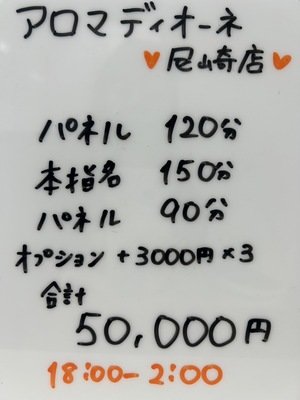 アロマディオーネ
♥尼崎店♥
パネル 120分
本指名 150分
パネル 90分
オプション +3000円×3
合計
50,000円
18:00-2:00